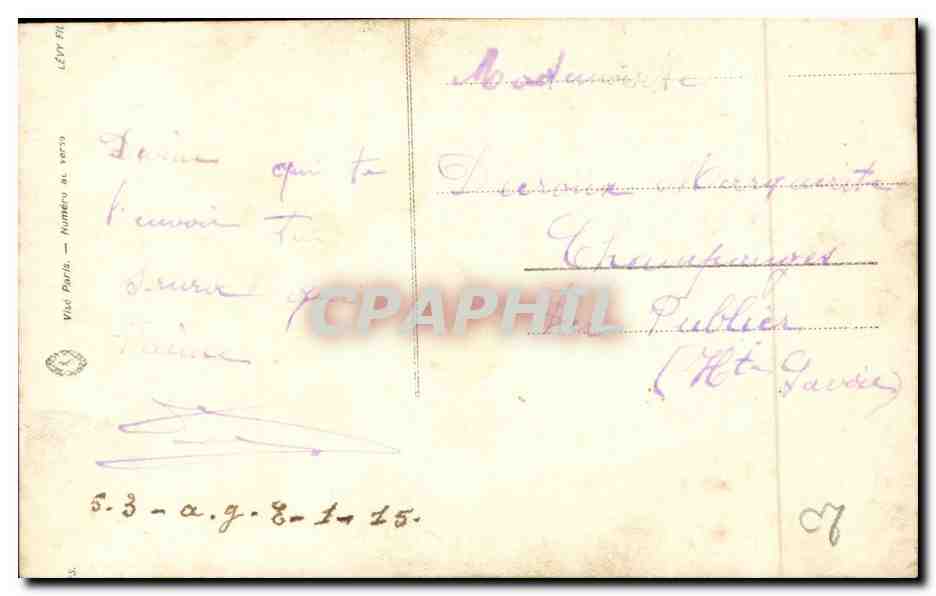 LÉVY FIL
Visé Paris. — Numéro au verso
qui te
t'envoie Ta
qui
T'aime
5.3 - a.g.E-1-15.
Mademoiselle
Decroux Marguerite
Champanges
Par Publier
(Hte Savoie)
CPAPHIL